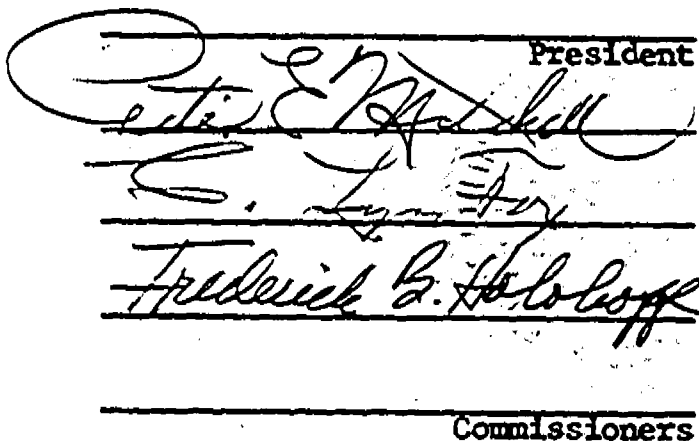 President
Peter E Mitchell
C. Lyn Fox
Frederick B. Holoboff
Commissioners